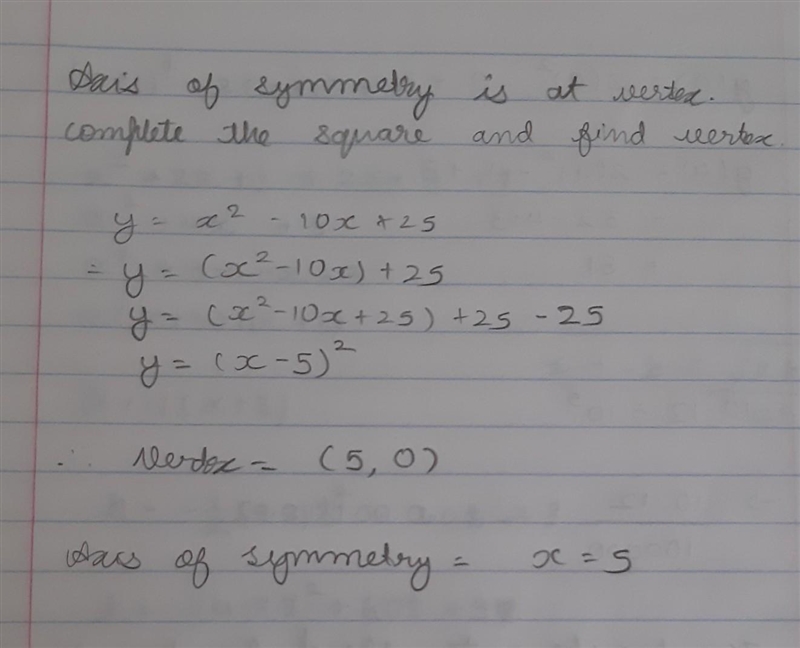 Axis of symmetry is at vertex.
complete the square and find vertex.
y = x² - 10x + 25
= y = (x² - 10x) + 25
y = (x² - 10x + 25) + 25 - 25
y = (x - 5)²
∴ Vertex = (5, 0)
Axis of symmetry = x = 5